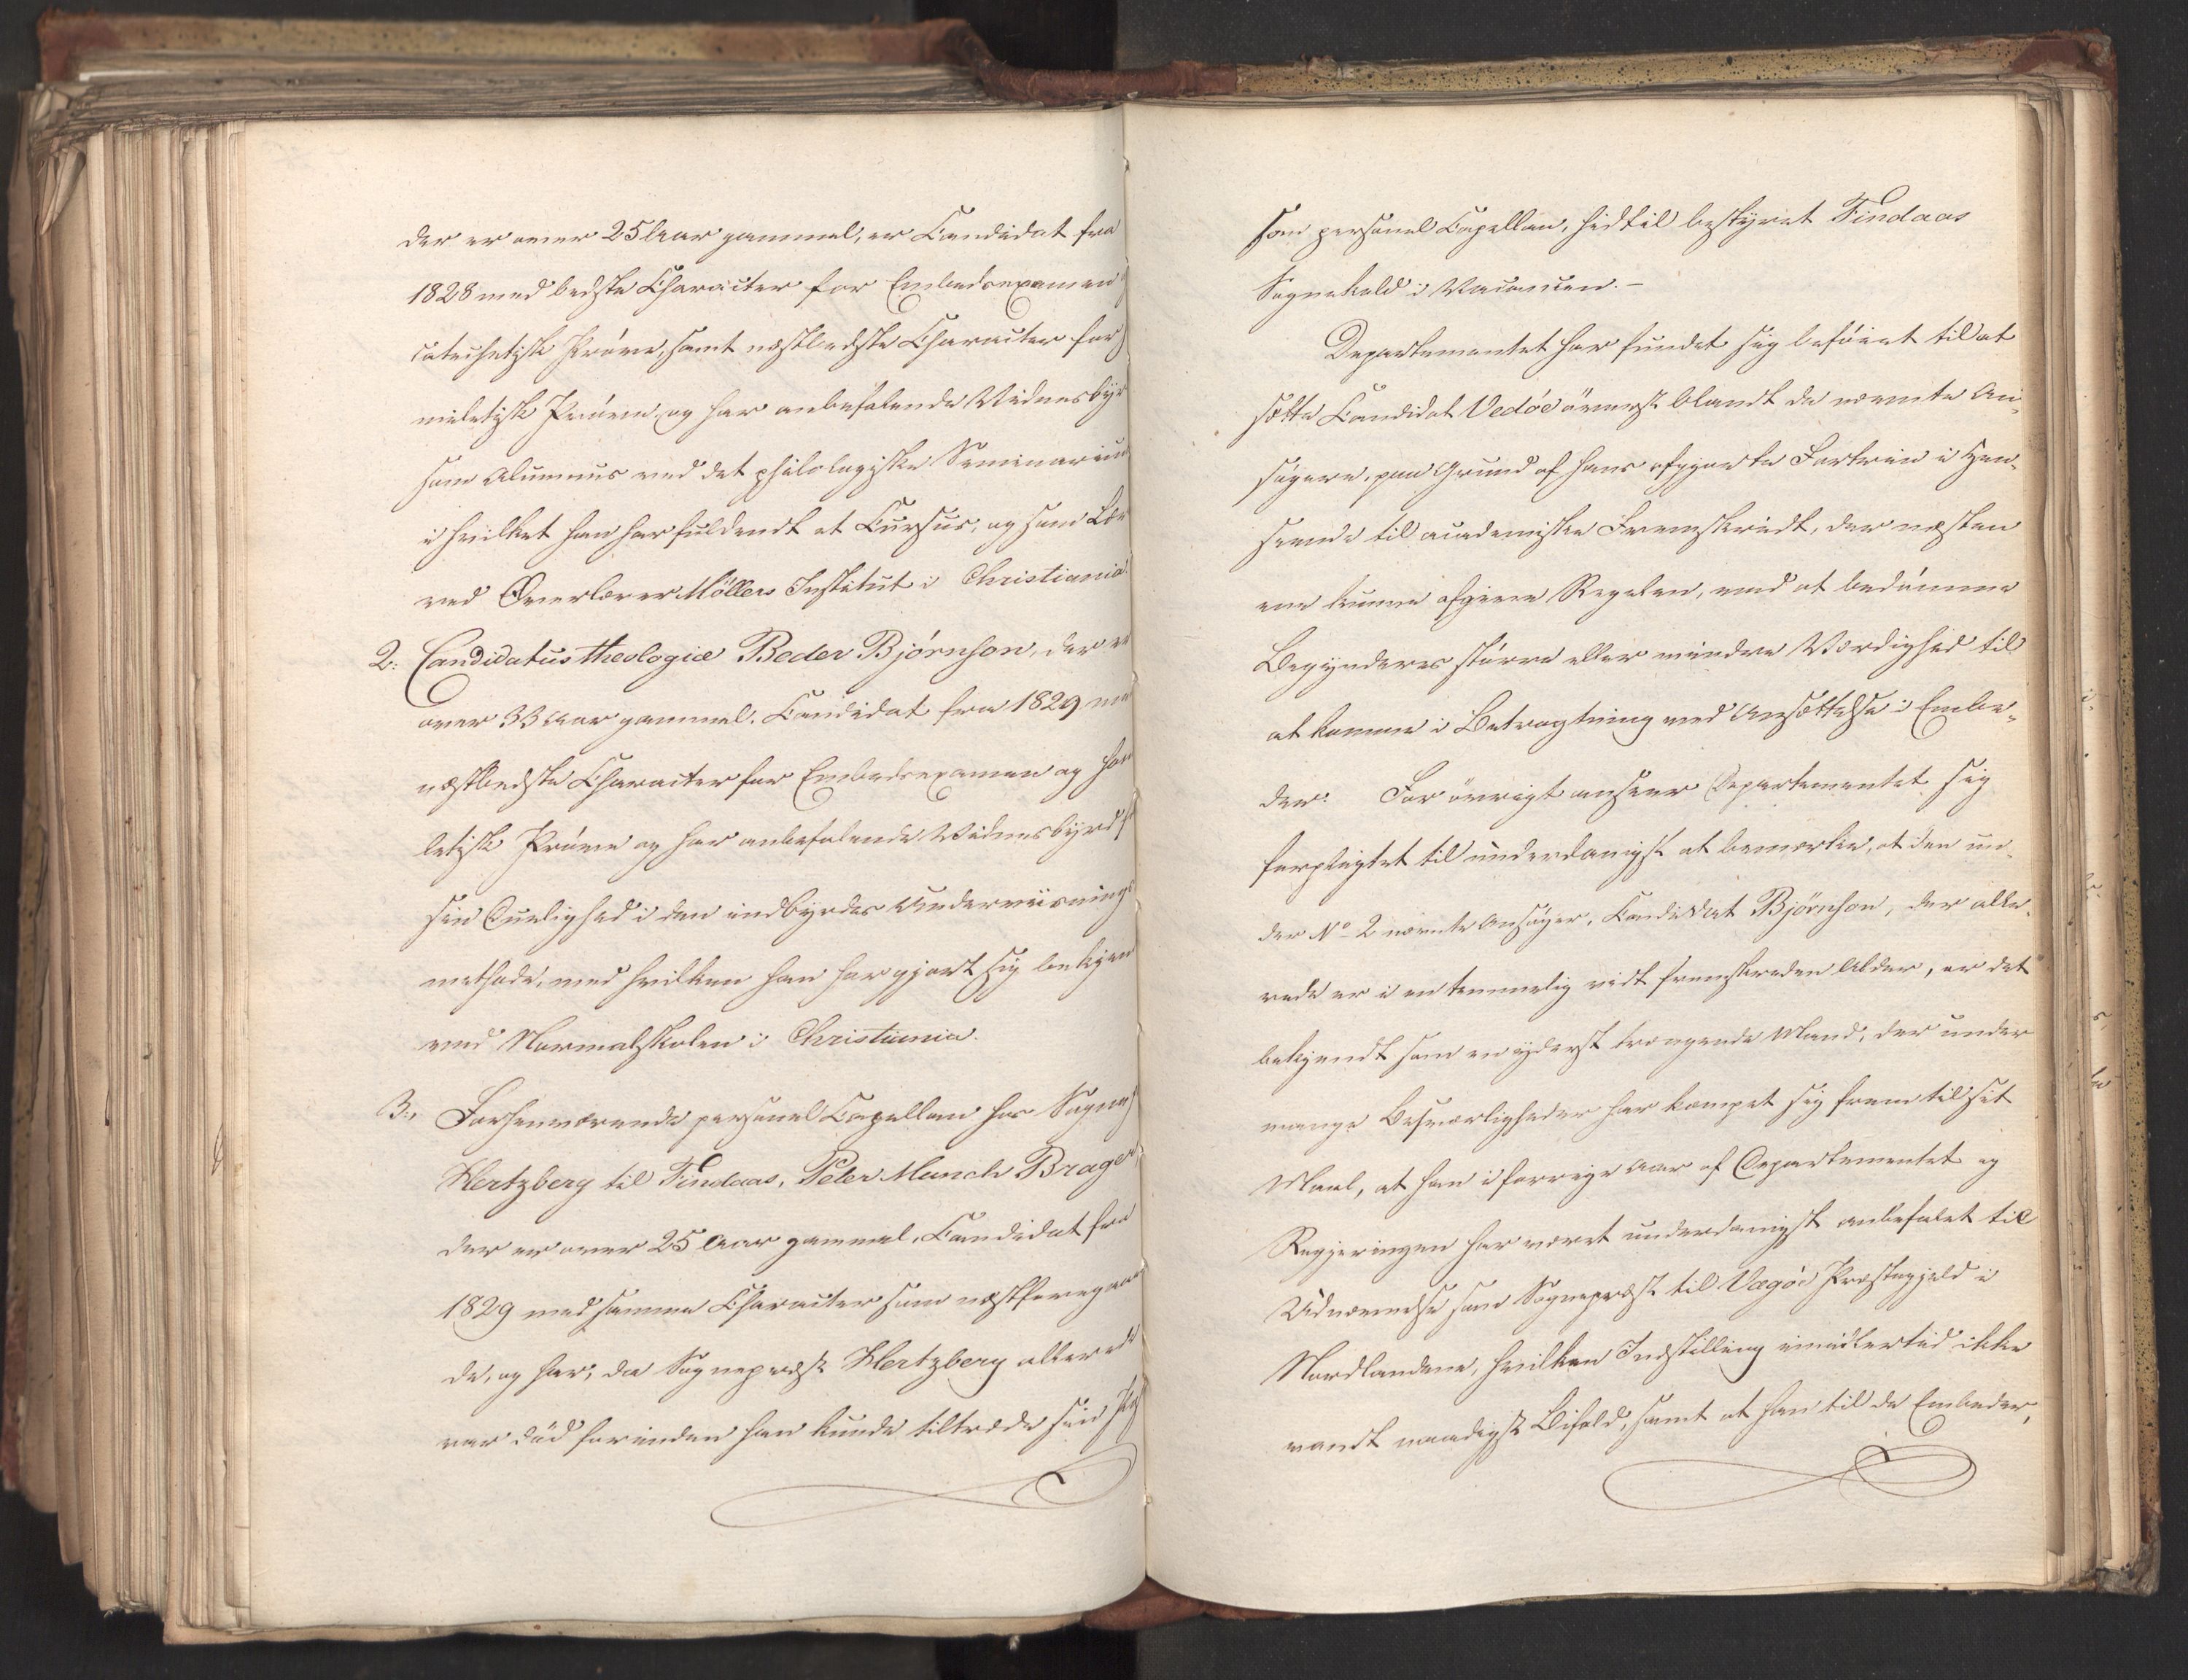 der er over 25 Aar gammel, er Candidat fra
1828 med bedste Character for Embedsexamen
catechetisk Prøve, samt næstbedste Character for
miletisk Prøve, og har anbefalende Vidnesbyr
som Alumnus ved det philologiske Seminarium
i hvilket han har fuldendt et Cursus, og som Lær
ved Overlærer Møllers Institut i Christiania.
2. Candidatus theologiæ Peder Bjørnson, der er
over 33 Aar gammel, Candidat fra 1829 me
næstbedste Character for Embedsexamen og ho
letisk Prøve og har anbefalende Vidnesbyrd f
sin Duelighed i den indbyrdes Underviisnings
methode, med hvilken han har gjort sig bekjen
ved Normalskolen i Christiania.
3. Forhenværende personel Capellan hos Sognep
Hertzberg til Findaas, Peter Munch Brager,
der er over 25 Aar gammel, Candidat fra
1829 med samme Character som næstforegaaen
de, og har, da Sognepræst Hertzberg allerede
var död forinden han kunde tiltræde sin Po
som personel Capellan, hidtil bestyret Findaas
Sognekald i Vacancen. -
Departementet har fundet sig beföiet til at
sætte Candidat Vedöe överst blandt de nævnte An-
søgere, paa Grund af hans afgjorte Fortrin i Hen-
seende til academiske Fremskridt, der næsten
ene kunne afgive Regelen, ved at bedömme
Begynderes större eller mindre Værdighed til
at komme i Betragtning ved Ansættelse i Embe-
der. For övrigt anseer Departementet sig
forpligtet til underdanigst at bemærke, at den un-
der No 2 nævnte Ansöger, Candidat Bjørnson, der alle-
rede er i en temmelig vidt fremskreden Alder, er det
bekjendt som en yderst trængende Mand, der under
mange Besværligheder har kæmpet sig frem til sit
Maal, at han i forrige Aar af Departementet og
Regjeringen har været underdanigst anbefalet til
Udnævnelse som Sognepræst til Vægöe Præstegjeld i
Nordlandene, hvilken Indstilling imidlertid ikke
vandt naadigst Bifald, samt at han til de Embeder,